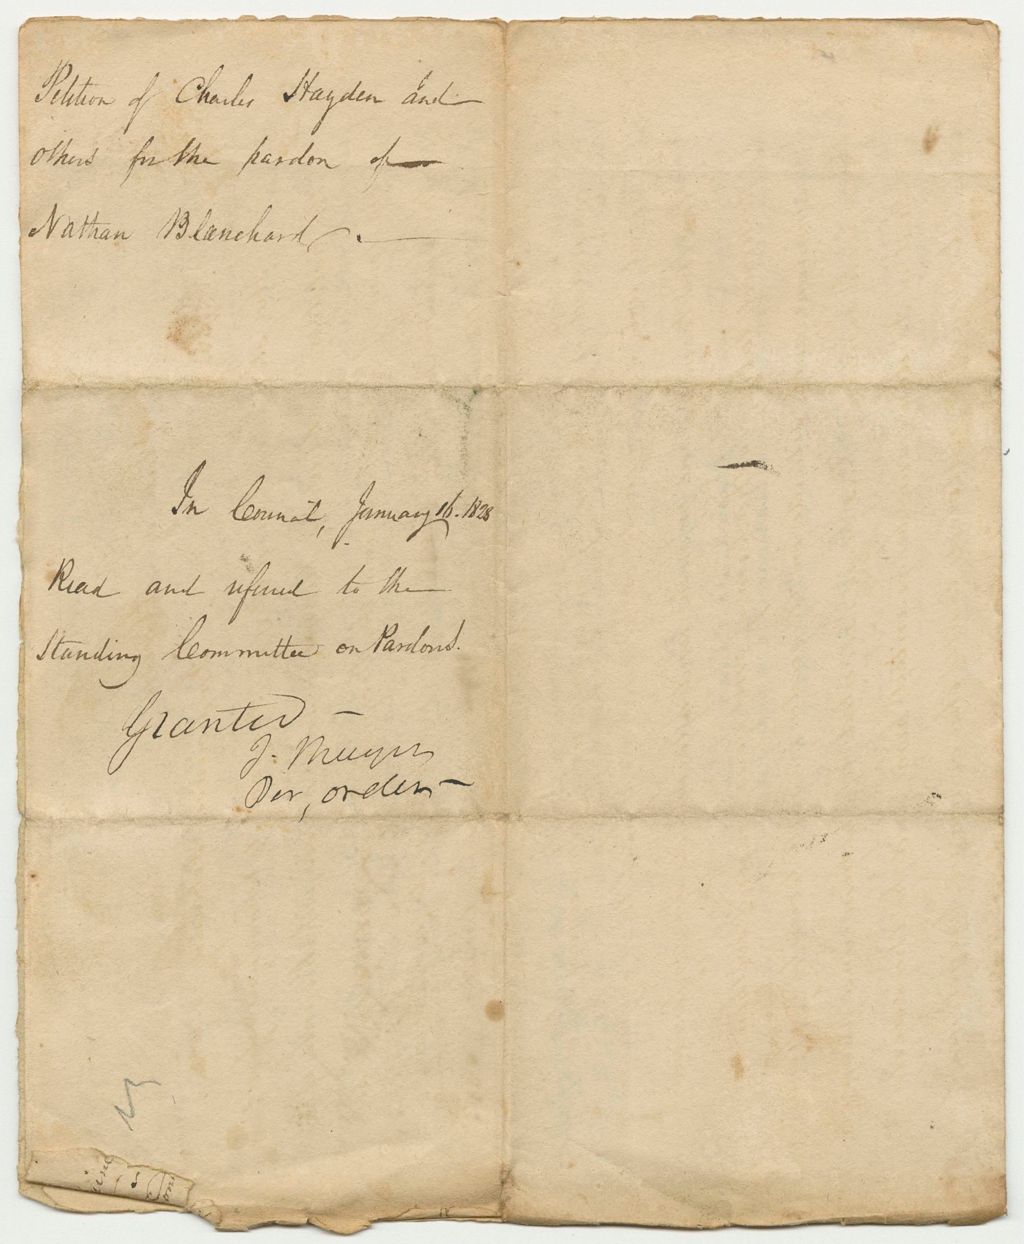 Petition of Charles Hayden and
others for the pardon of
Nathan Blanchard.
In Council, January 16. 1828
Read and referred to the
Standing Committee on Pardons.
Granted
J.
Per, order